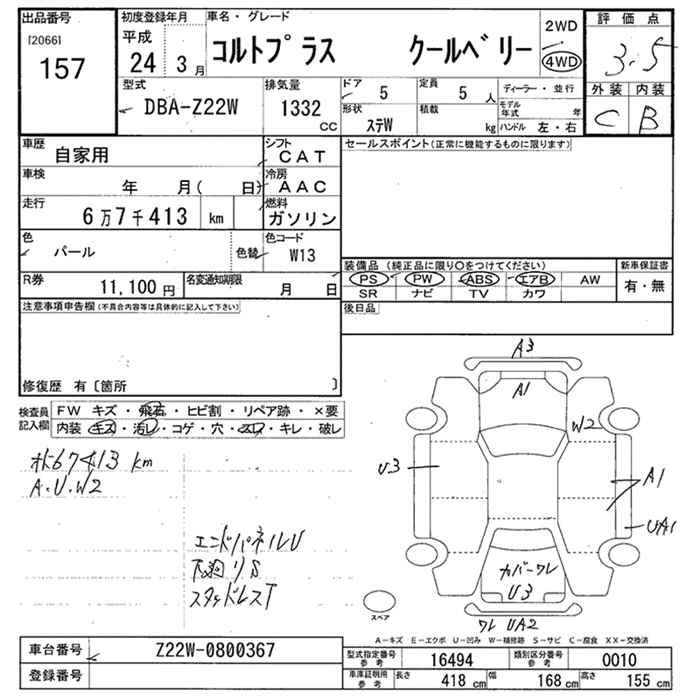 出品番号
[2066]
157
初度登録年月
平成
24 3月
車名・グレード
コルトプラス クールベリー
2WD
4WD
評価点
3.5
外装 内装
C B
型式
DBA-Z22W
排気量
1332 cc
ドア 5
定員 5 人
ディーラー・並行
形状 ステW
積載 kg
モデル年式 年
ハンドル 左・右
車歴
自家用
シフト
CAT
車検
年 月( 日)
冷房
AAC
走行
6万7千413 km
燃料
ガソリン
色
パール
色替
色コード
W13
R券
11,100 円
名変通知期限
月 日
セールスポイント(正常に機能するものに限ります)
装備品 (純正品に限り○をつけてください)
PS PW ABS エアB AW
SR ナビ TV カワ
新車保証書
有・無
後日品
注意事項申告欄(不具合内容等は具体的に記入して下さい)
修復歴 有〔箇所 〕
検査員記入欄
FW キズ・飛石・ヒビ割・リペア跡・×要
内装 キズ・汚レ・コゲ・穴・スレ・キレ・破レ
メ67413 km
A.U.W2
エンドパネルU
下廻りS
スタッドレスT
A3
A1
W2
U3
A1
UA1
カバーワレ
U3
ワレ UA2
スペア
A－キズ E－エクボ U－凹み W－補修跡 S－サビ C－腐食 XX－交換済
車台番号
Z22W-0800367
登録番号
型式指定番号 参考
16494
類別区分番号 参考
0010
車庫証明所 参考
長さ 418 cm
幅 168 cm
高さ 155 cm